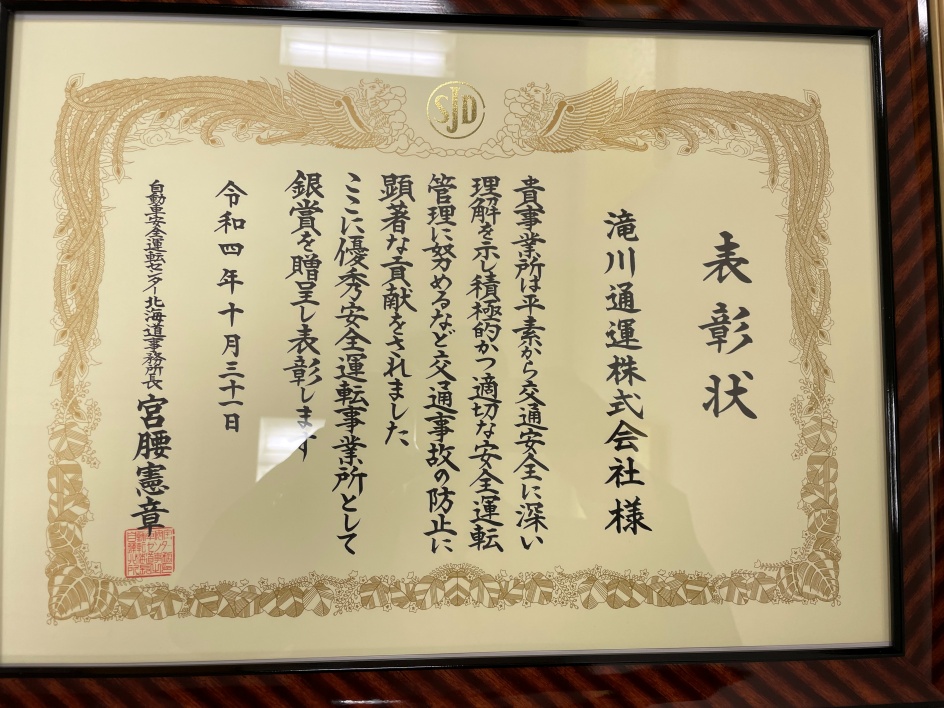 SJD
表彰状
滝川通運株式会社様
貴事業所は平素から交通安全に深い
理解を示し積極的かつ適切な安全運転
管理に努めるなど交通事故の防止に
顕著な貢献をされました
ここに優秀安全運転事業所として
銀賞を贈呈し表彰します
令和四年十月三十一日
自動車安全運転センター北海道事務所長
宮腰憲章